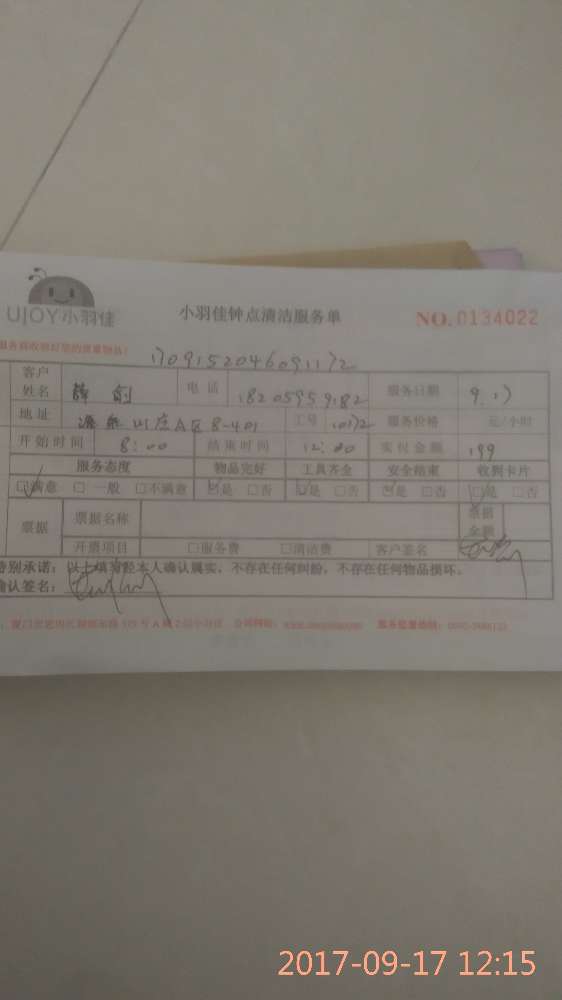 UJOY小羽佳
小羽佳钟点清洁服务单
NO. 0134022
1709152046091172
客户姓名 薛剑 电话 18205959182 服务日期 9.17
地址 山庄A区8-401 工号 服务价格 元/小时
开始时间 8:00 结束时间 12:00 实付金额 199
服务态度 物品完好 工具齐全 安全结束 收到卡片
☑满意 □一般 □不满意 ☑是 □否 ☑是 □否 ☑是 □否 ☑是 □否
票据 票据名称 票据金额
开票项目 □服务费 □清洁费 客户签名
特别承诺：以上填写经本人确认属实，不存在任何纠纷，不存在任何物品损坏。
确认签名：
2017-09-17 12:15